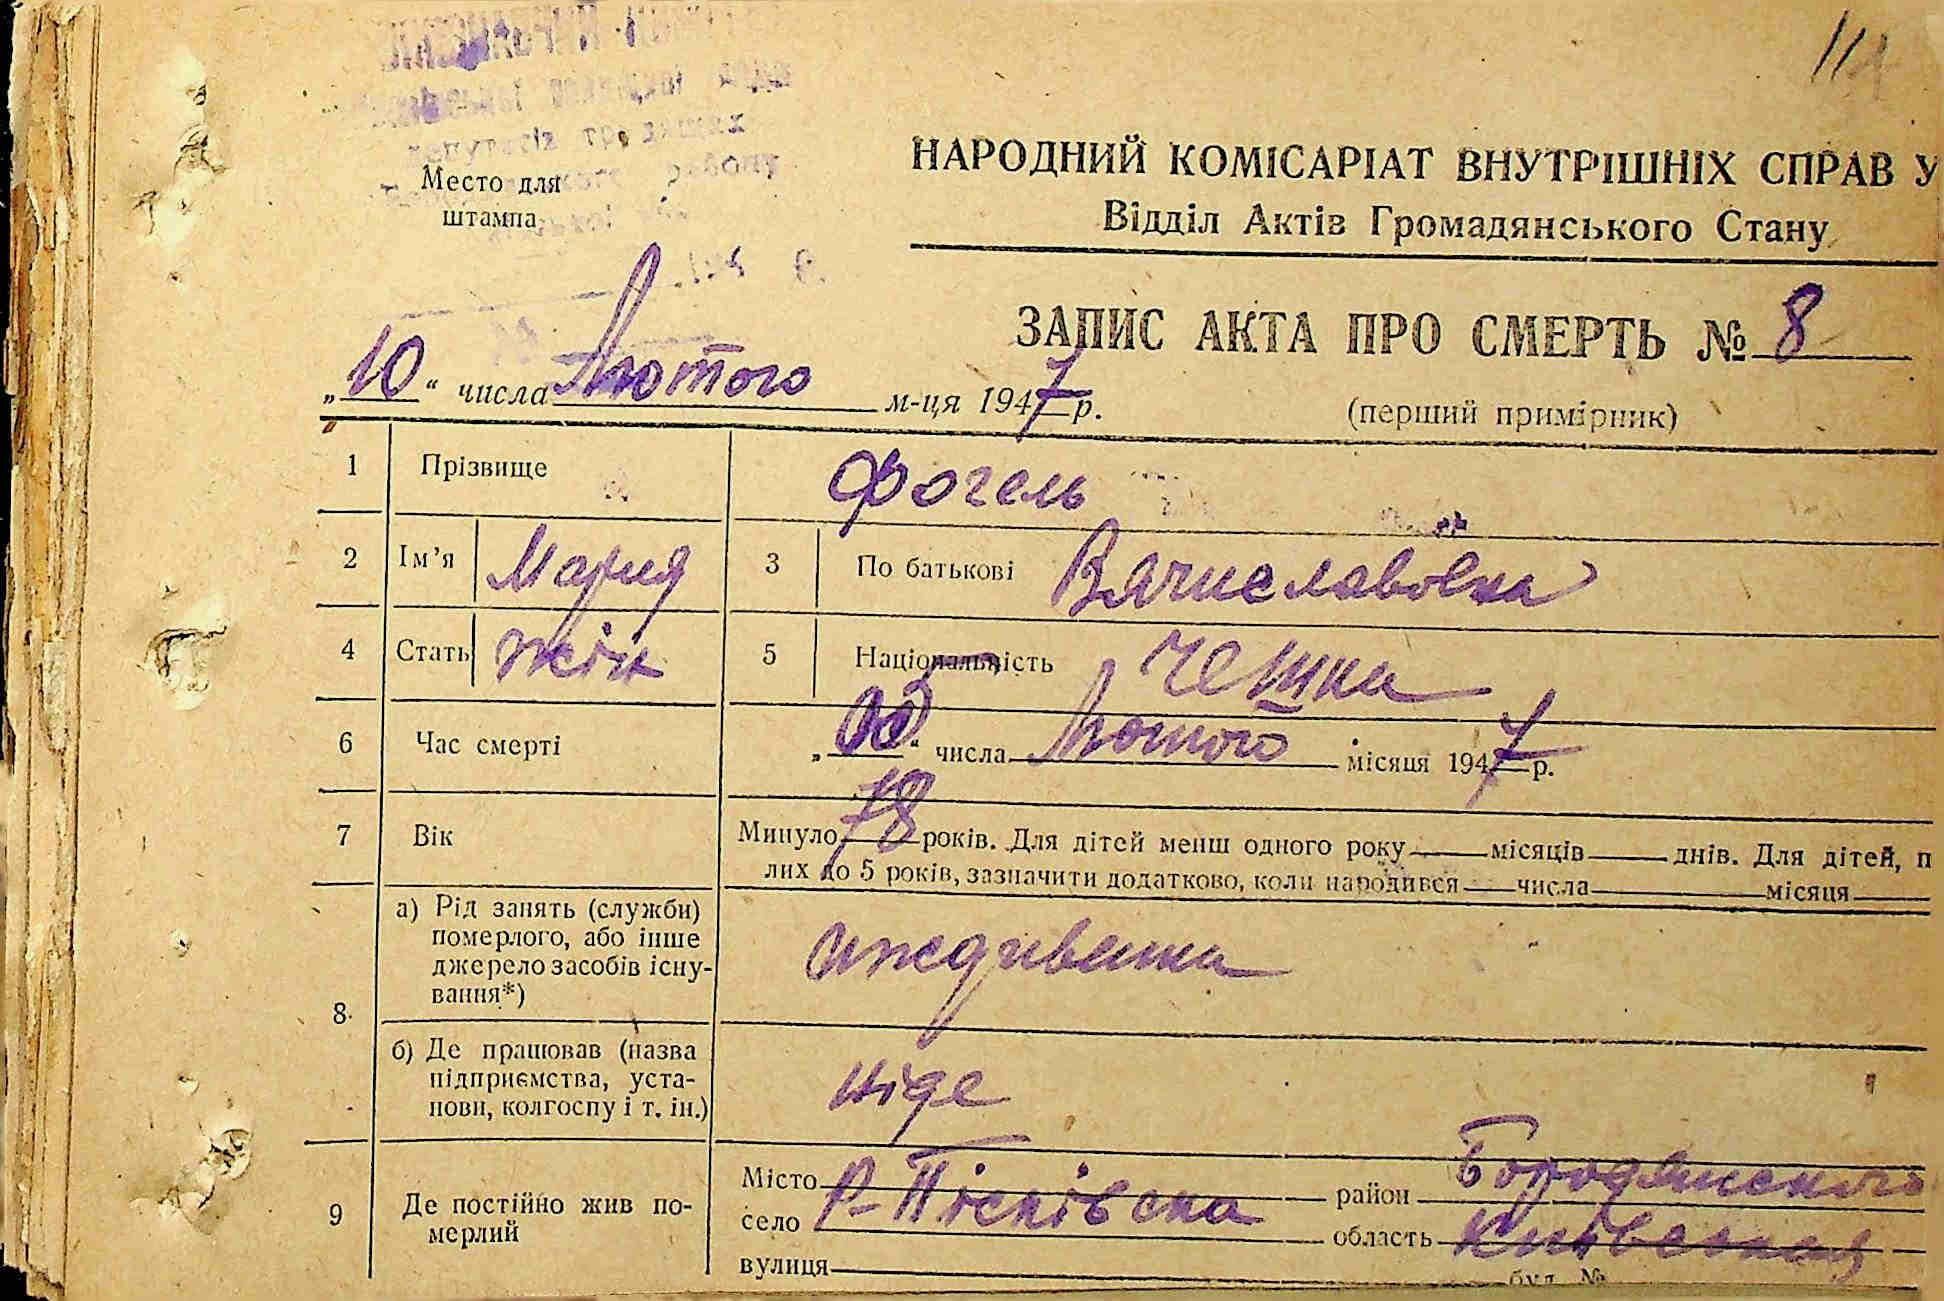 114
Место для
штампа
НАРОДНИЙ КОМІСАРІАТ ВНУТРІШНІХ СПРАВ У
Відділ Актів Громадянського Стану
ЗАПИС АКТА ПРО СМЕРТЬ № 8
„10“ числа Лютого м-ця 1947 р.
(перший примірник)
1 Прізвище Фогель
2 Ім'я Мария 3 По батькові Вячиславовна
4 Стать жін 5 Національність чешка
6 Час смерті числа Лютого місяця 1947 р.
7 Вік Минуло 78 років. Для дітей менш одного року місяців днів. Для дітей, п
лих до 5 років, зазначити додатково, коли народився числа місяця
8 а) Рід занять (служби)
померлого, або інше
джерело засобів існу-
вання*)
иждивенка
б) Де працював (назва
підприємства, уста-
нови, колгоспу і т. ін.)
ніде
9 Де постійно жив по-
мерлий
Місто район Бородянского
село Р-Пісківска область Київская
вулиця буд. №